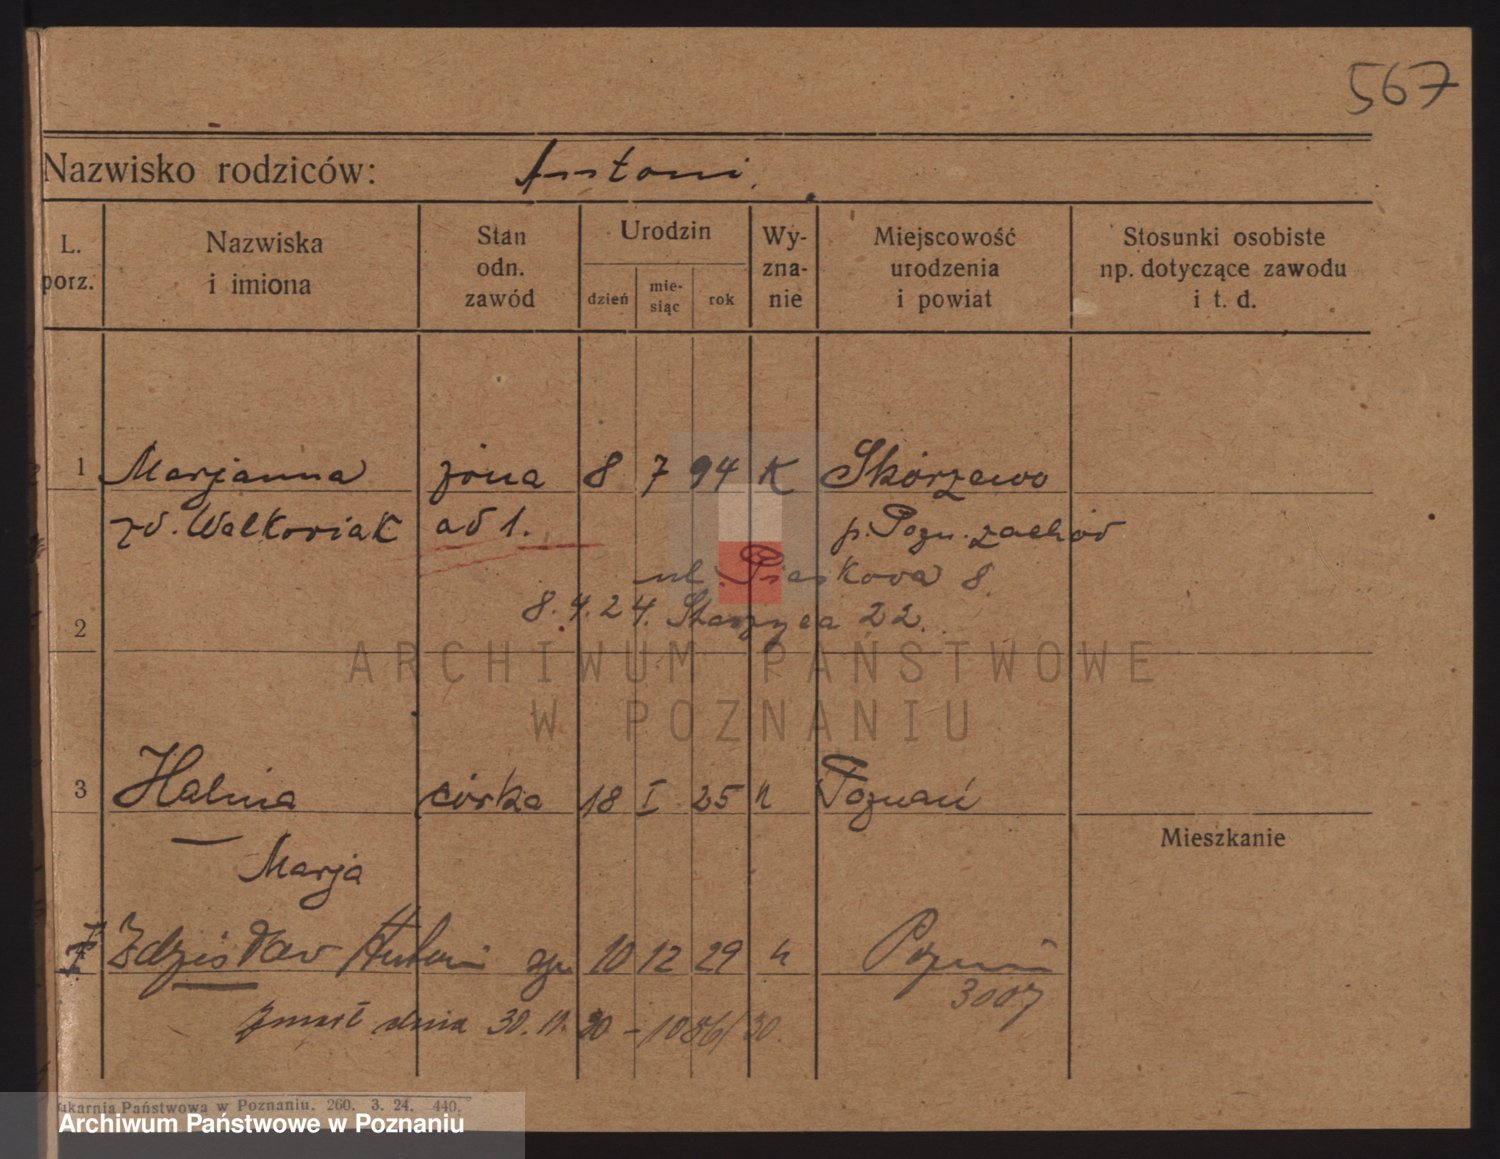 567
Nazwisko rodziców: Antoni
L. porz.
Nazwiska i imiona
Stan odn. zawód
Urodzin
dzień
mie-siąc
rok
Wy-zna-nie
Miejscowość urodzenia i powiat
Stosunki osobiste np. dotyczące zawodu i t. d.
1 Marjanna żona 8 7 94 K Skórzewo
zd. Walkoviak ad 1. p. Pozn. zachód
ul. Piaskova 8.
8.4.24. Starzyca 22.
2
ARCHIWUM PAŃSTWOWE
W POZNANIU
3 Halina córka 18 I 25 k Poznań
Mieszkanie
Marja
Zdzisław Antoni syn 10 12 29 k Poznań
3007
zmarł dnia 30. 11. 30 - 1086/30.
ukarnia Państwowa w Poznaniu. 260. 3. 24. 440.
Archiwum Państwowe w Poznaniu